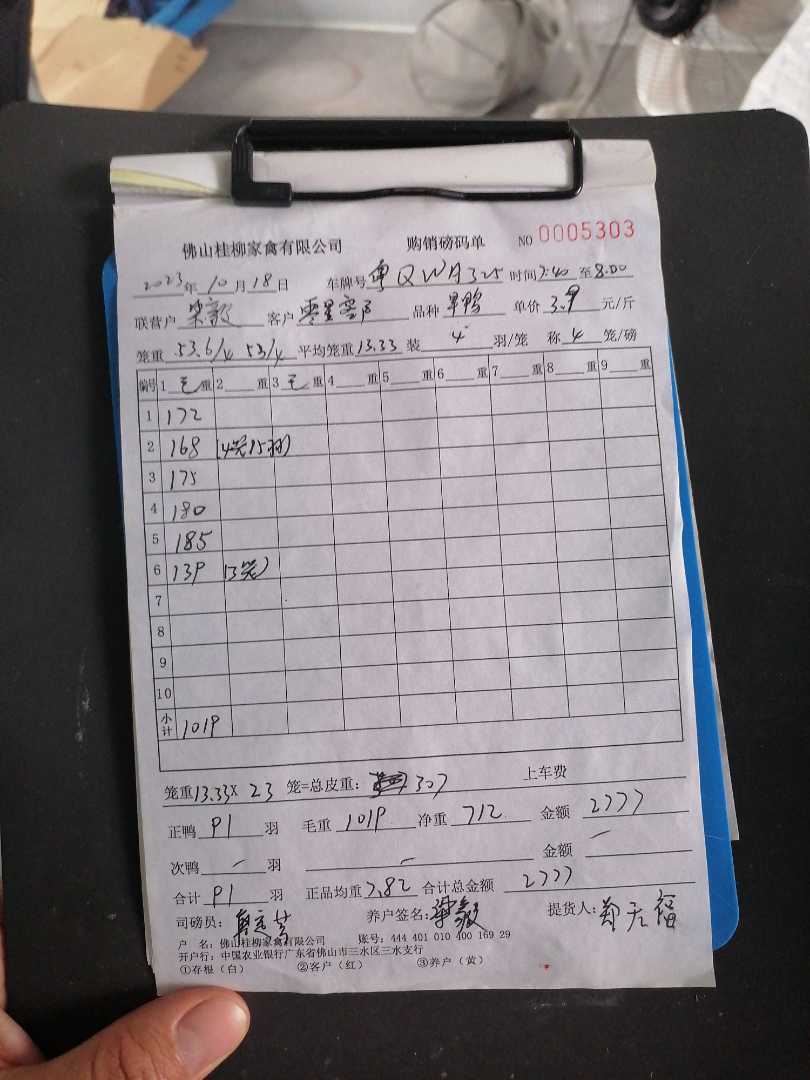 佛山桂柳家禽有限公司 购销磅码单 NO 0005303
2023年10月18日 车牌号 粤QWA325 时间7:40至8:00
联营户 客户 零星客户 品种 旱鸭 单价 3.9 元/斤
笼重 53.6/4 53/4 平均笼重13.33 装 4 羽/笼 称 4 笼/磅
编号 1 毛 重 2 重 3 毛 重 4 重 5 重 6 重 7 重 8 重 9 重
1 172
2 168 (4笼15羽)
3 175
4 180
5 185
6 139 (3笼)
7
8
9
10
小计 1019
笼重13.33× 23 笼=总皮重: 307 上车费
正鸭 91 羽 毛重 1019 净重 712 金额 2777
次鸭 — 羽 — 金额 —
合计 91 羽 正品均重 7.82 合计总金额 2777
司磅员: 养户签名: 提货人: 郑天福
户 名: 佛山桂柳家禽有限公司 账号: 444 401 010 400 169 29
开户行: 中国农业银行广东省佛山市三水区三水支行
①存根(白) ②客户(红) ③养户(黄)